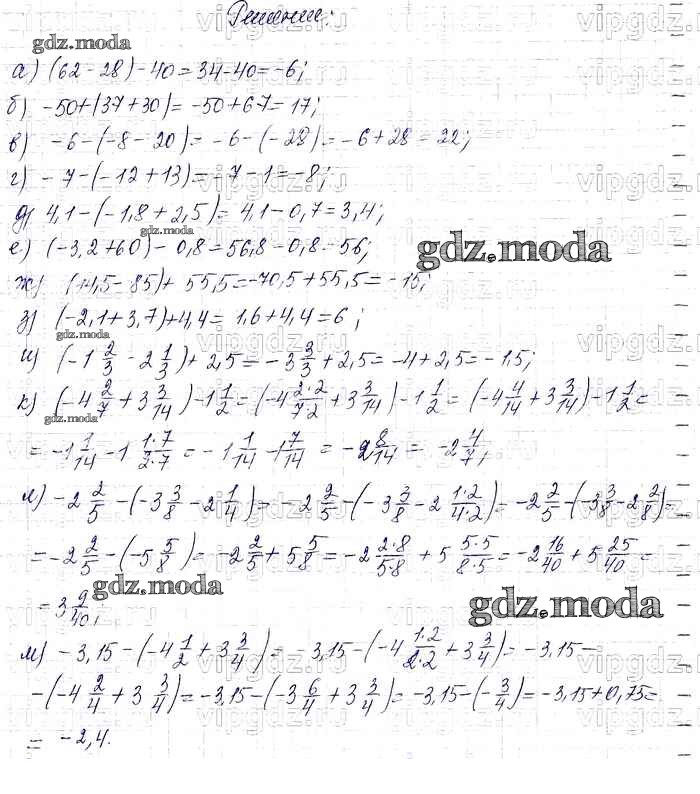 Решение:
а) (62 - 28) - 40 = 34 - 40 = -6;
б) -50 + (37 + 30) = -50 + 67 = 17;
в) -6 - (-8 - 20) = -6 - (-28) = -6 + 28 = 22;
г) -7 - (-12 + 13) = -7 - 1 = -8;
д) 4,1 - (-1,8 + 2,5) = 4,1 - 0,7 = 3,4;
е) (-3,2 + 60) - 0,8 = 56,8 - 0,8 = 56;
ж) (14,5 - 85) + 55,5 = -70,5 + 55,5 = -15;
з) (-2,1 + 3,7) + 4,4 = 1,6 + 4,4 = 6;
и) (-1 2/3 - 2 1/3) + 2,5 = -3 3/3 + 2,5 = -4 + 2,5 = -1,5;
к) (-4 2/7 + 3 3/14) - 1 1/2 = (-4 2·2/7·2 + 3 3/14) - 1 1/2 = (-4 4/14 + 3 3/14) - 1 1/2 =
= -1 1/14 - 1 1·7/2·7 = -1 1/14 - 1 7/14 = -2 8/14 = -2 4/7;
л) -2 2/5 - (-3 3/8 - 2 1/4) = -2 2/5 - (-3 3/8 - 2 1·2/4·2) = -2 2/5 - (-3 3/8 - 2 2/8) =
= -2 2/5 - (-5 5/8) = -2 2/5 + 5 5/8 = -2 2·8/5·8 + 5 5·5/8·5 = -2 16/40 + 5 25/40 =
= 3 9/40;
м) -3,15 - (-4 1/2 + 3 3/4) = -3,15 - (-4 1·2/2·2 + 3 3/4) = -3,15 -
- (-4 2/4 + 3 3/4) = -3,15 - (-3 6/4 + 3 3/4) = -3,15 - (-3/4) = -3,15 + 0,75 =
= -2,4.
gdz.moda
vipgdz.ru